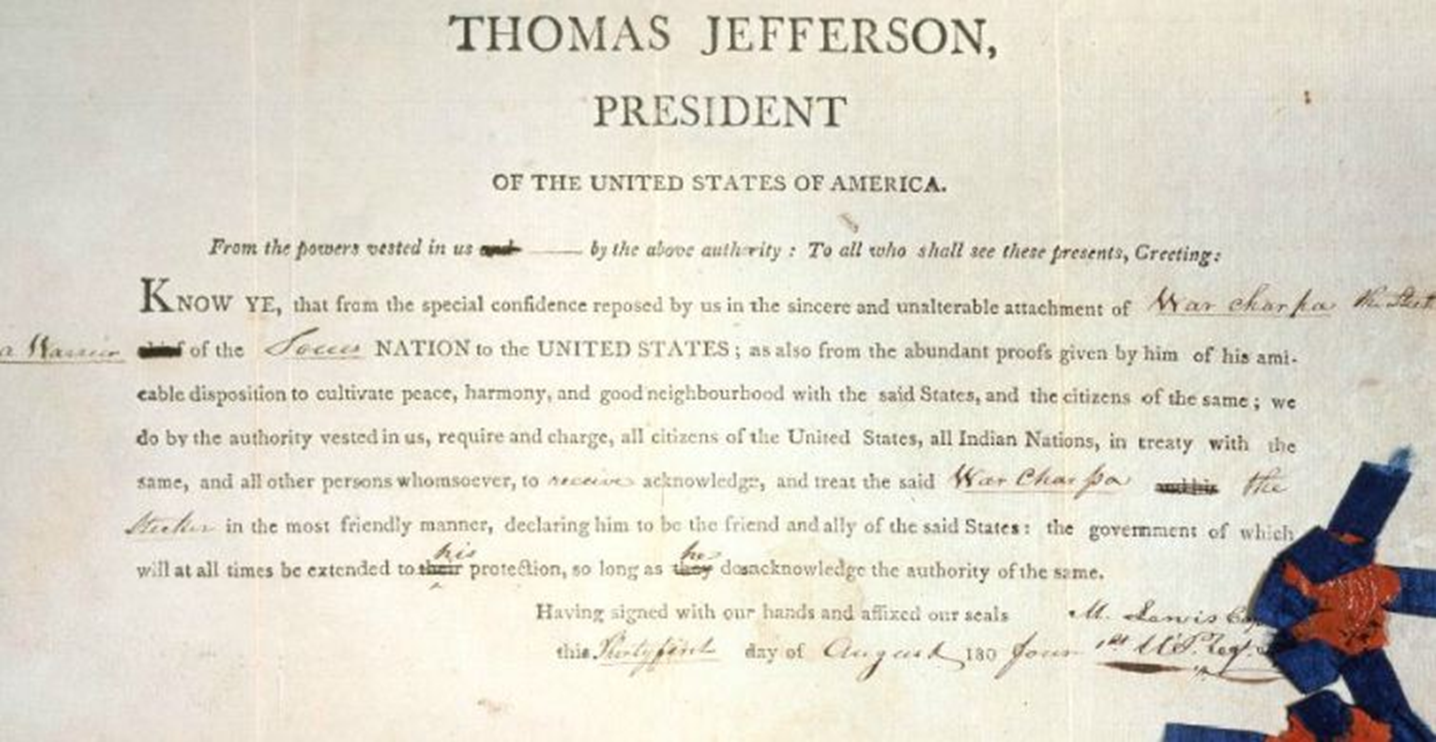 THOMAS JEFFERSON,
PRESIDENT
OF THE UNITED STATES OF AMERICA.
From the powers vested in us and by the above authority : To all who shall see these presents, Greeting:
KNOW YE, that from the special confidence reposed by us in the sincere and unalterable attachment of War char pa the
a Warrior chief of the Soues NATION to the UNITED STATES ; as also from the abundant proofs given by him of his ami-
cable disposition to cultivate peace, harmony, and good neighbourhood with the said States, and the citizens of the same ; we
do by the authority vested in us, require and charge, all citizens of the United States, all Indian Nations, in treaty with the
same, and all other persons whomsoever, to receive acknowledge, and treat the said War Char pa and his the
in the most friendly manner, declaring him to be the friend and ally of the said States: the government of which
his he
will at all times be extended to their protection, so long as they do acknowledge the authority of the same.
Having signed with our hands and affixed our seals M. Lewis
this Thirty first day of August 180 four 1st U.S. Regt.